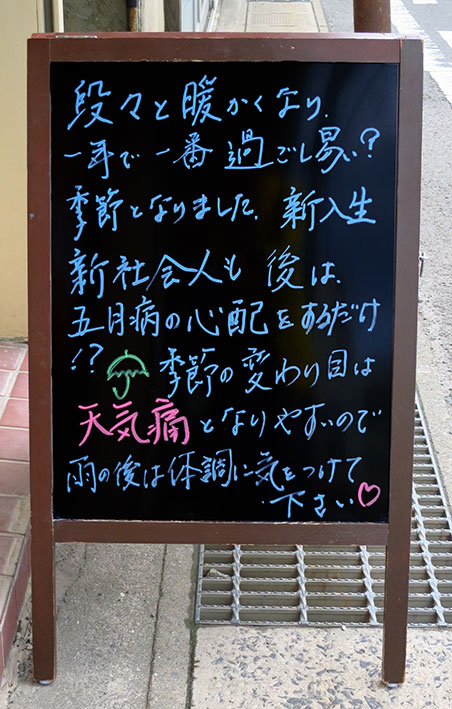 段々と暖かくなり、
一年で一番過ごし易い?
季節となりました。新入生
新社会人も後は、
五月病の心配をするだけ
!? 季節の変わり目は
天気痛となりやすいので
雨の後は体調に気をつけて
下さい♡